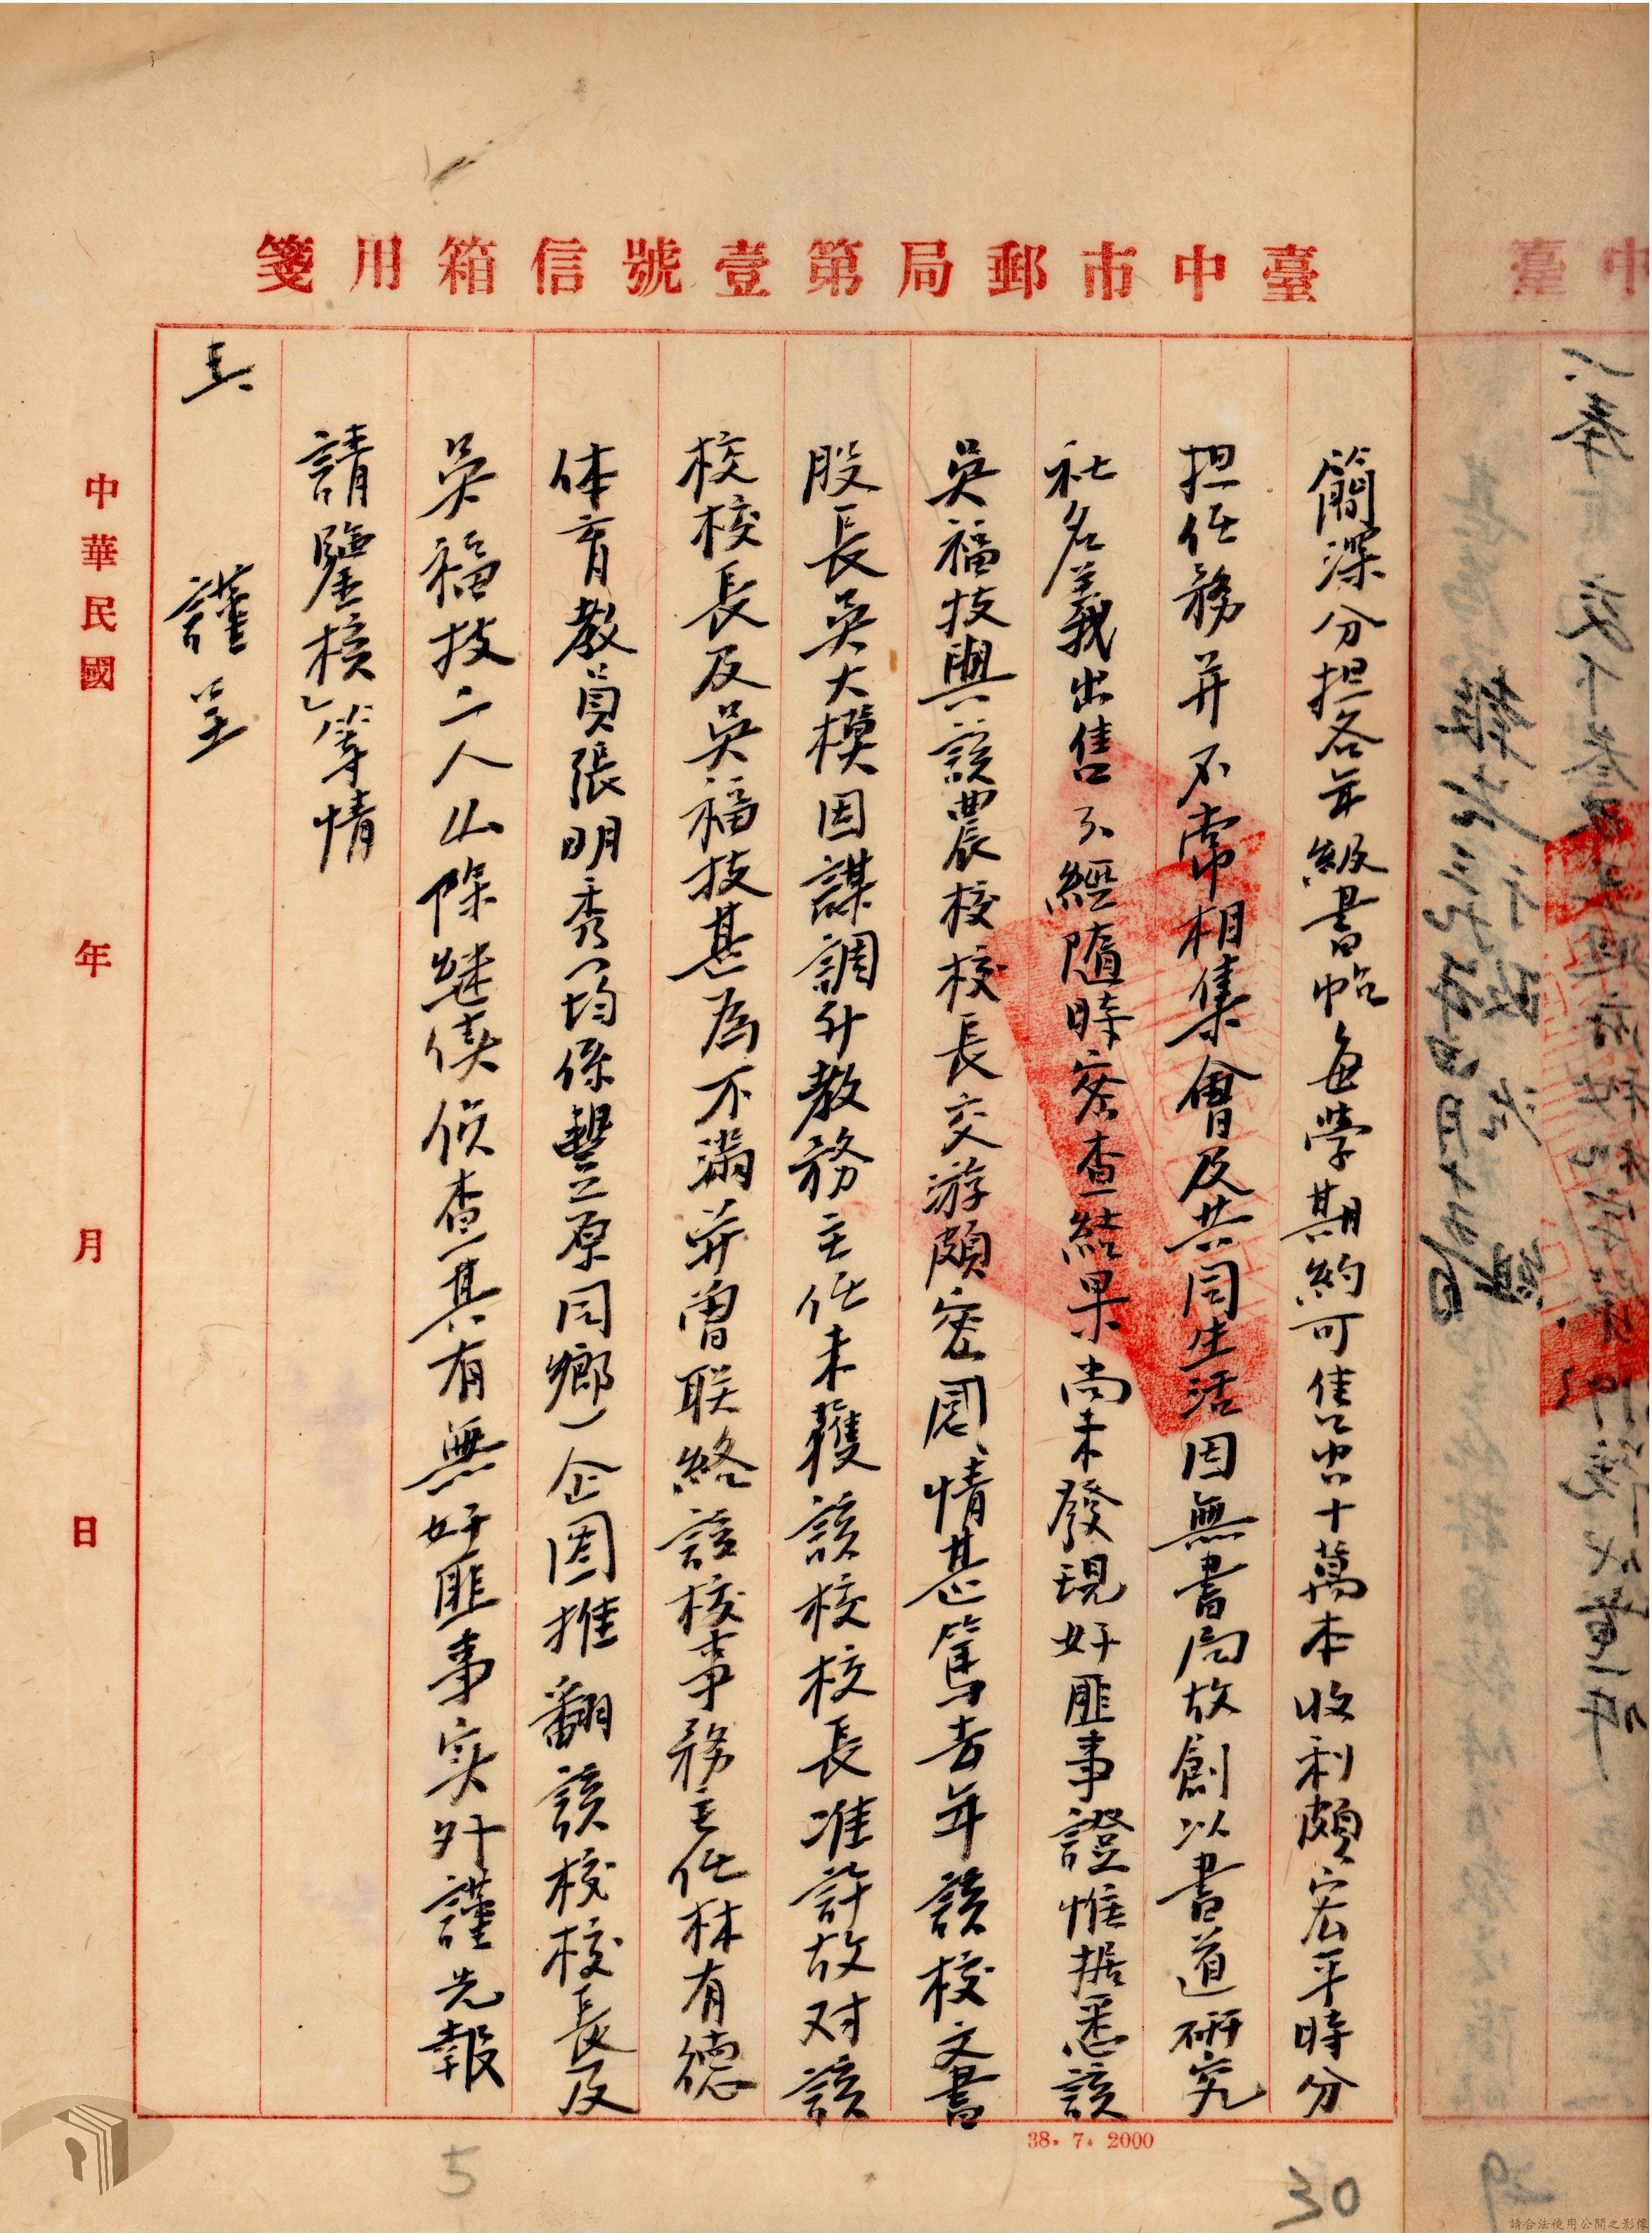 臺中市郵局第壹號信箱用箋
簡深分担各年級書帖每學期約可售出十萬本收利頗宏平時分
担任務并不常相集會及共同生活因無書局故創以書道研究
社名義出售不經隨時密查結果尚未發現奸匪事證惟据悉該
吳福技與該農校校長交游頗密感情甚篤去年該校文書
股長吳大模因謀調升教務主任未獲該校校長准許故对該
校校長及吳福技甚為不滿并曾联絡該校事務主任林有德
体育教員張明秀（均係豐原同鄉）企图推翻該校校長及
吳福技二人山除继续侦查其有無奸匪事实外謹先報
請鑒核」等情
三、謹呈
中華民國 年 月 日
38. 7. 2000
5
30
29
請合法使用公開之影像